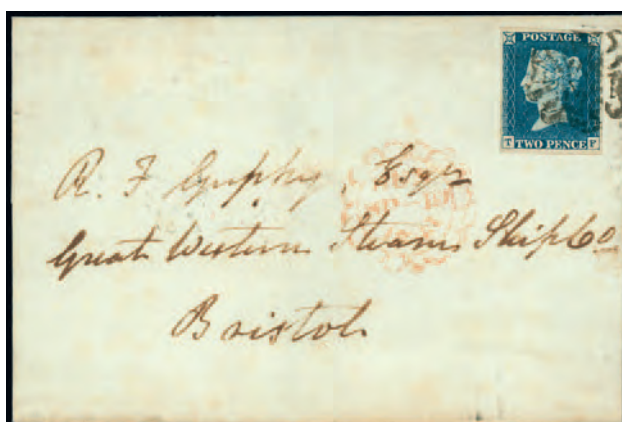 POSTAGE
T TWO PENCE F
R. F Guppy, Esqre
Great Western Steam Ship Co
Bristol